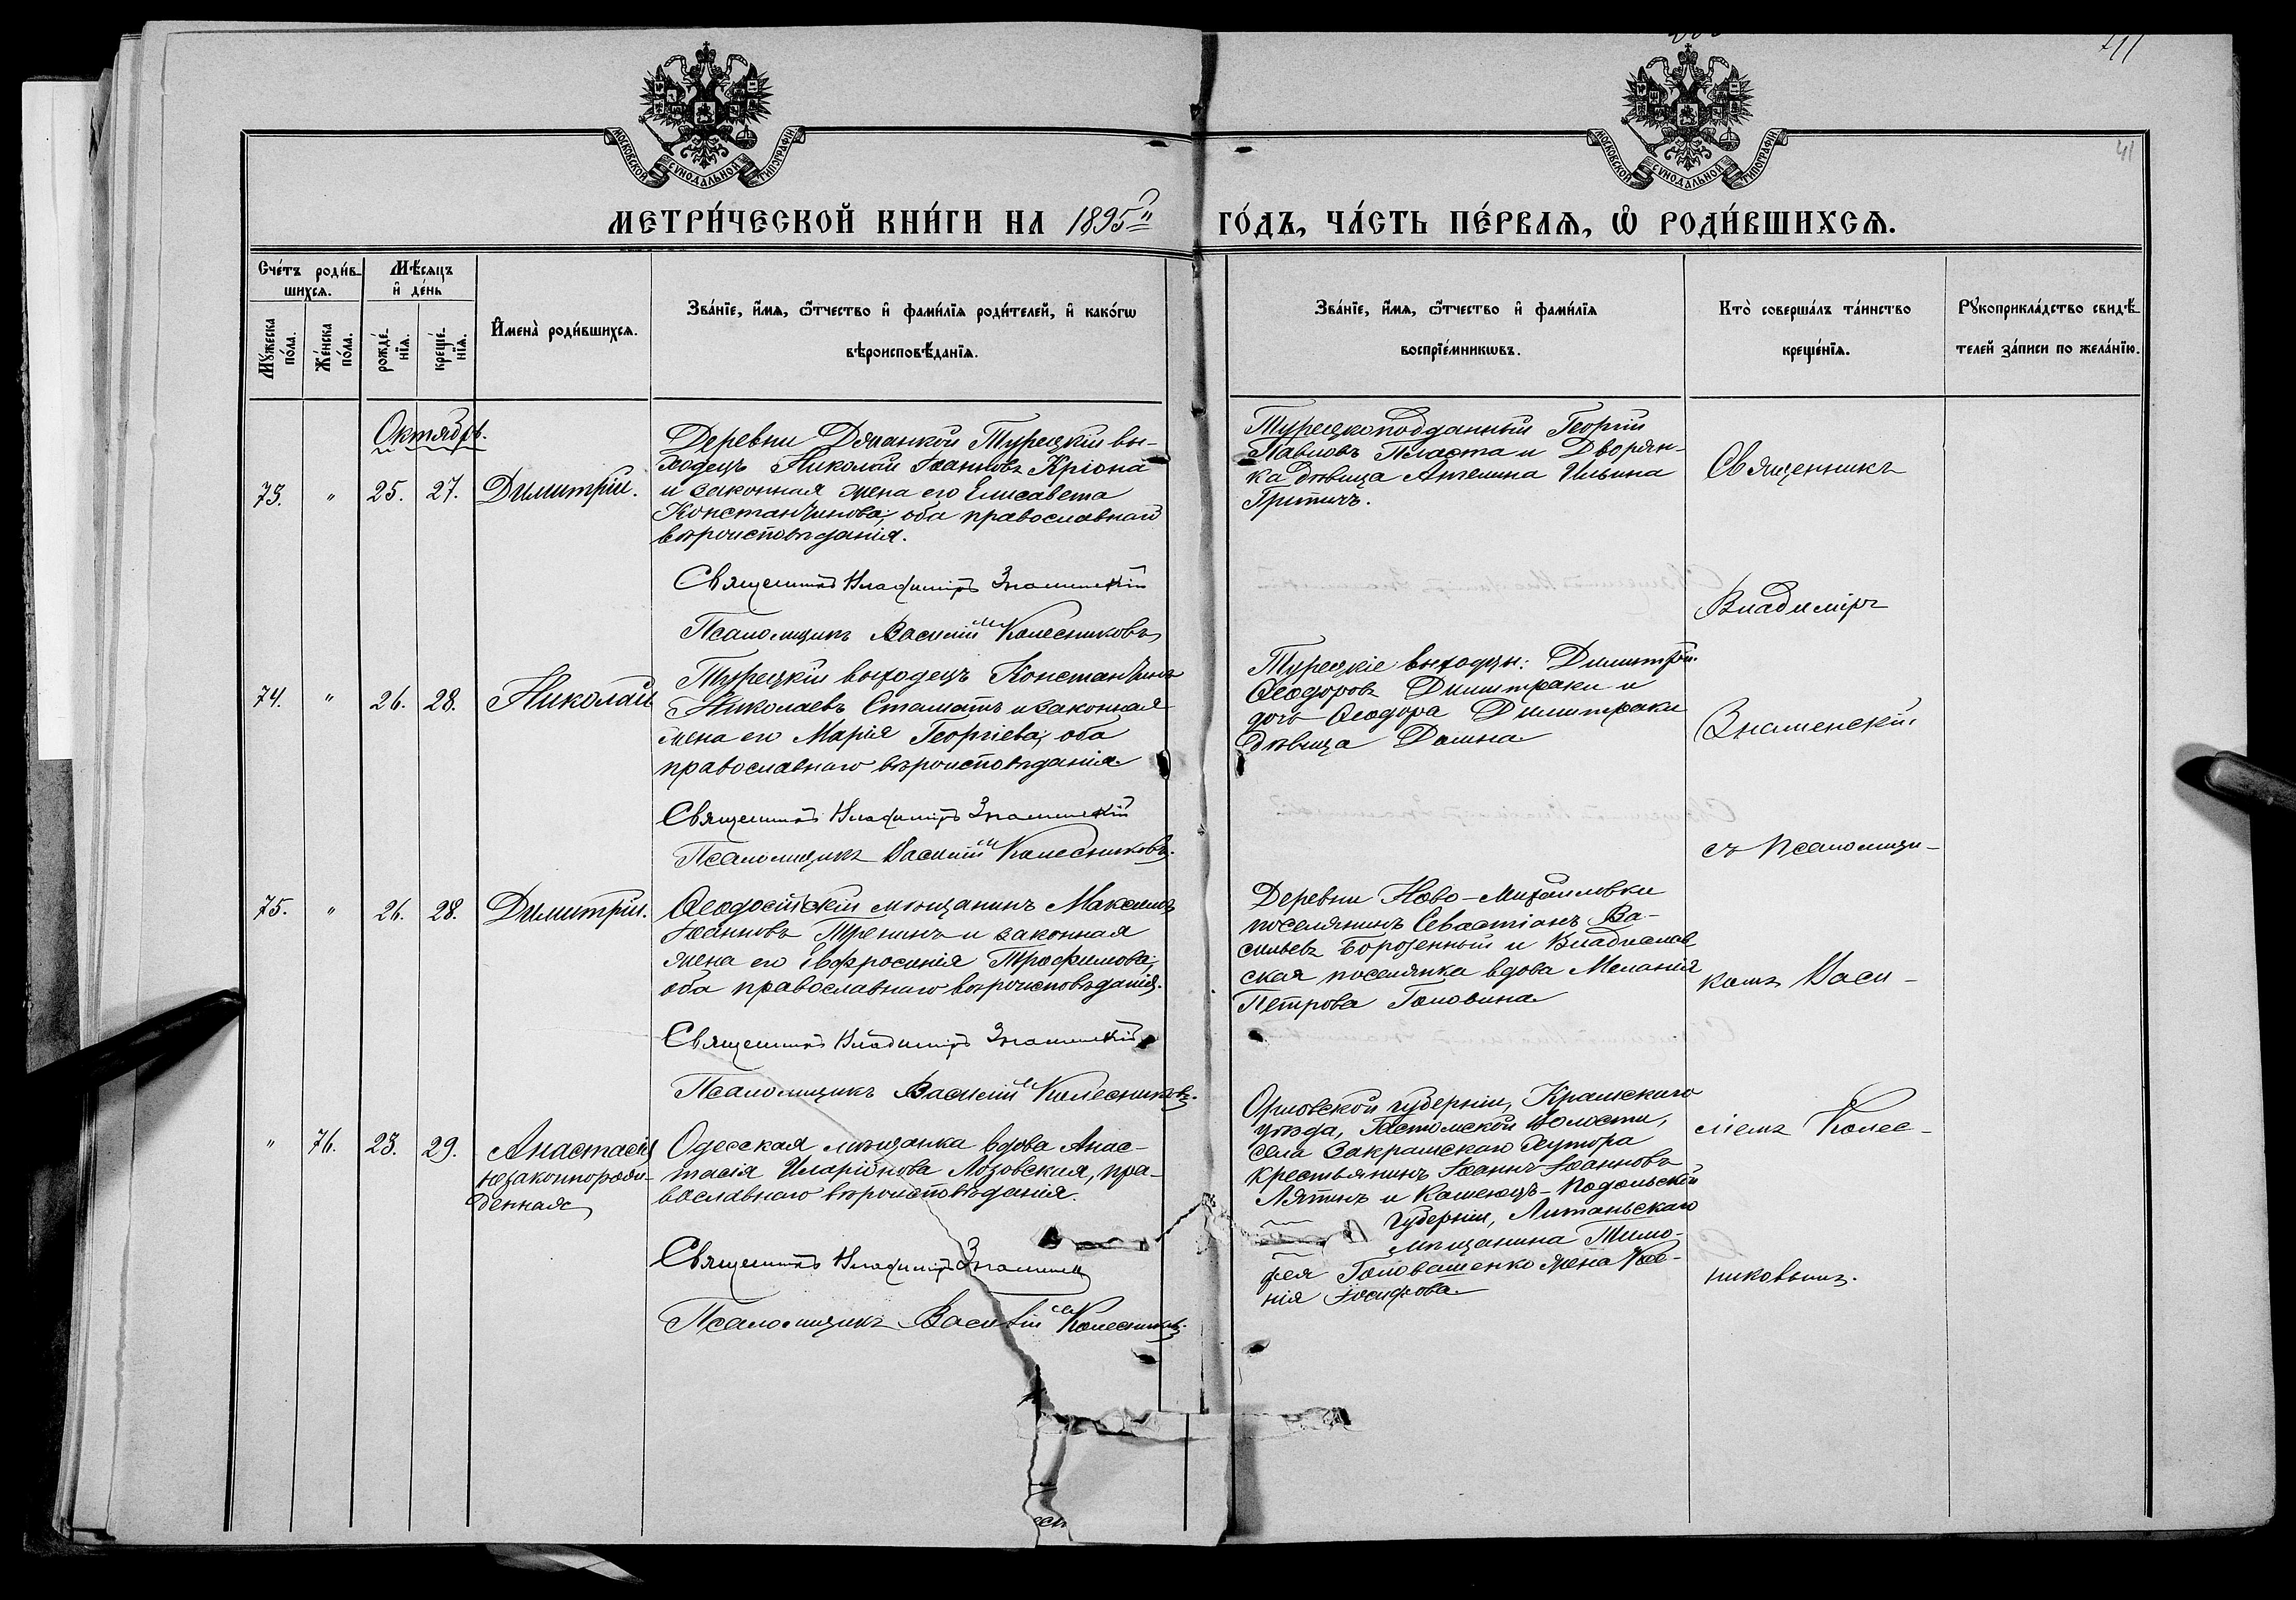 41
МОСКОВСКОЙ СѴНОДАЛЬНОЙ ТИПОГРАФІИ
МОСКОВСКОЙ СѴНОДАЛЬНОЙ ТИПОГРАФІИ
МЕТРИ́ЧЕСКОЙ КНИ́ГИ НА 1895 ГО́ДЪ, ЧА́СТЬ ПЕ́РВАѦ, Ѡ РОДИ́ВШИХСѦ.
Сче́тъ роди́в-
шихсѧ.
Мꙋжеска по́ла.
Же́нска по́ла.
Мѣ́сѧцъ
и҆ де́нь
рожде́-
нїѧ.
креще́-
нїѧ.
И҆мена̀ роди́вшихсѧ.
Зва́нїе, и҆́мѧ, ѻ҆́тчество и҆ фами́лїѧ роди́телей, и҆ како́гѡ
вѣроисповѣ́данїѧ.
Зва́нїе, и҆́мѧ, ѻ҆́тчество и҆ фами́лїѧ
воспрїе́мникѡвъ.
Кто̀ соверша́лъ та́инство
креще́нїѧ.
Рꙋкоприкла́дство свидѣ́-
телей за́писи по жела́нїю.
Октябрь.
73. " 25. 27. Димитрій.
Деревни Турецкій вы-
ходецъ Николай Іоанновъ Кріона
и законная жена его Елисавета
Константинова, оба православнаго
вѣроисповѣданія.
Священникъ Владиміръ Знаменскій
Псаломщикъ Василій Колесниковъ
Турецкоподданный Георгій
Павловъ Пласта и Дворян-
ка дѣвица Ангелина Ильина
Гритичъ.
74. " 26. 28. Николай
Турецкій выходецъ Константинъ
Николаевъ Стаматъ и законная
жена его Марія Георгіева, оба
православнаго вѣроисповѣданія
Священникъ Владиміръ Знаменскій
Псаломщикъ Василій Колесниковъ.
Турецкіе выходцы: Димитрій
Ѳеодоровъ Димитраки и
дочь Ѳеодора Димитраки
дѣвица Домна
75. " 26. 28. Димитрій.
Ѳеодосійскій мѣщанинъ Максимъ
Іоанновъ Тренинъ и законная
жена его Евфросинія Трофимова,
оба православнаго вѣроисповѣданія.
Священникъ Владиміръ Знаменскій
Псаломщикъ Василій Колесниковъ.
Деревни Ново-Михайловки
поселянинъ Севастіанъ Ва-
сильевъ Борозенный и Владислав
ская поселянка вдова Меланія
Петрова Головина
" 76. 23. 29. Анастасія
незаконнорож-
денная
Одесская мѣщанка вдова Анас-
тасія Иларіонова Лозовская, пра-
вославнаго вѣроисповѣданія.
Священникъ Владиміръ Знаменскій
Псаломщикъ Василій Колесниковъ.
Орловской губерніи, Кромскаго
уѣзда, Гостомской Волости,
села Закромскаго Хутора
крестьянинъ Іоаннъ Іоанновъ
Лятинъ и Каменецъ-Подольской
губерніи,
мѣщанина Тимо-
фея Головашенко жена Ксе-
нія Іосифова
Священникъ
Владиміръ
Знаменскій
съ Псаломщи-
комъ Васи-
ліемъ Колес-
никовымъ.